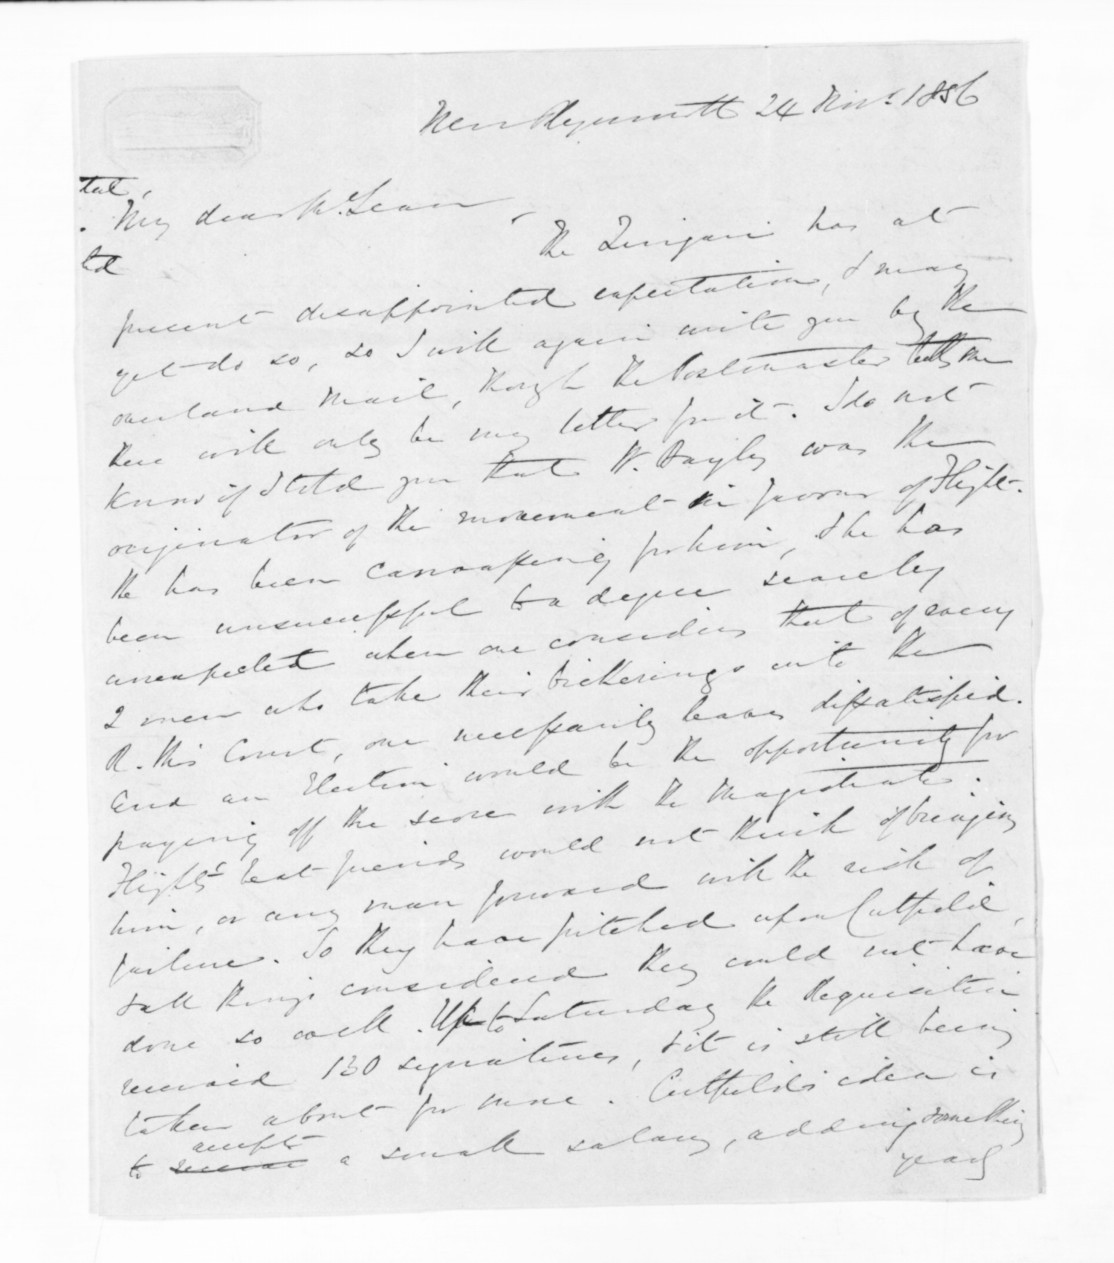 New Plymouth 24 Novr. 1856
tat,
My dear McLean
td
The Zingari has at
present disappointed expectation, & may
yet do so, so I will again write you by the
overland Mail, though the Postmaster tells me
there will only be my letter for it. I do not
know if I told you that W. Bayley was the
originator of the movement in favour of Flight.
He has been canvassing for him, & he has
been unsuccessful to a degree scarcely
unexpected when one considers that of every
2 men who take their bickerings into the
R. Mis Court, one necessarily leaves dissatisfied.
And an Election would be the opportunity for
paying off the score with the Magistrate.
Flight's best friends would not think of bringing
him, or any man forward with the risk of
failure. So they have pitched upon Cutfield,
& all things considered they could not have
done so well. Up to Saturday the Requisition
received 130 signatures, & it is still being
taken about for more. Cutfield's idea is
accept
to receive a small salary, adding something
yearly